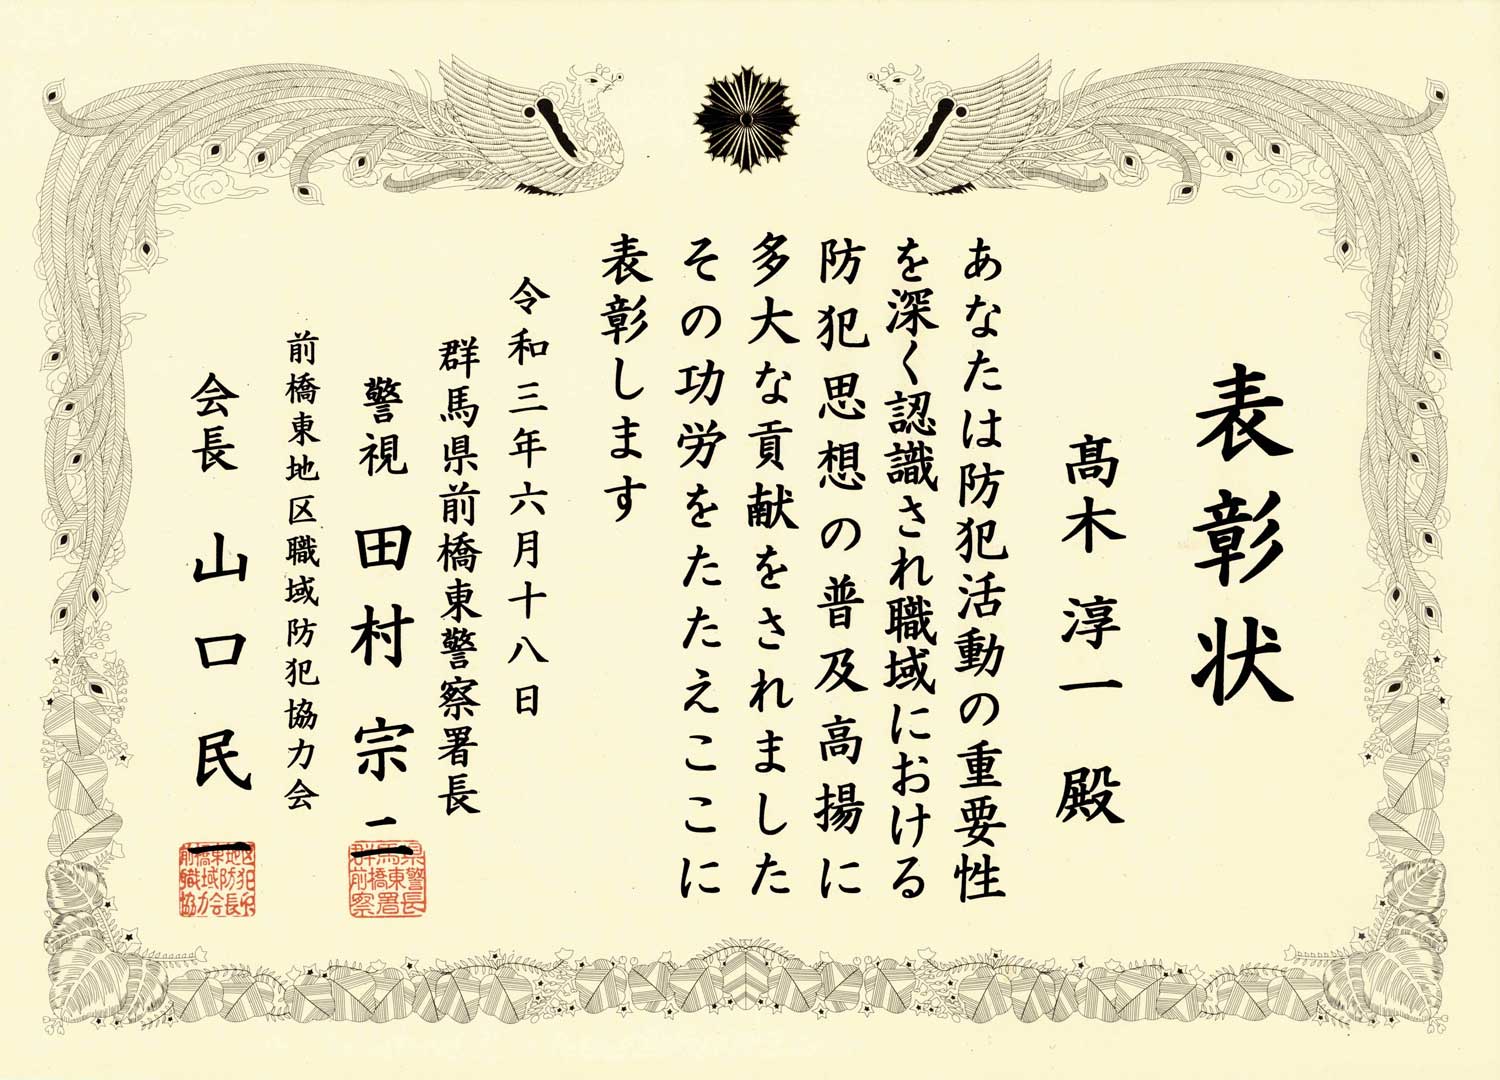 表彰状
髙木淳一殿
あなたは防犯活動の重要性
を深く認識され職域における
防犯思想の普及高揚に
多大な貢献をされました
その功労をたたえここに
表彰します
令和三年六月十八日
群馬県前橋東警察署長
警視 田村宗二
前橋東地区職域防犯協力会
会長 山口民一
群馬県
前橋東警
察署長
前橋東地区
職域防犯
協力会長